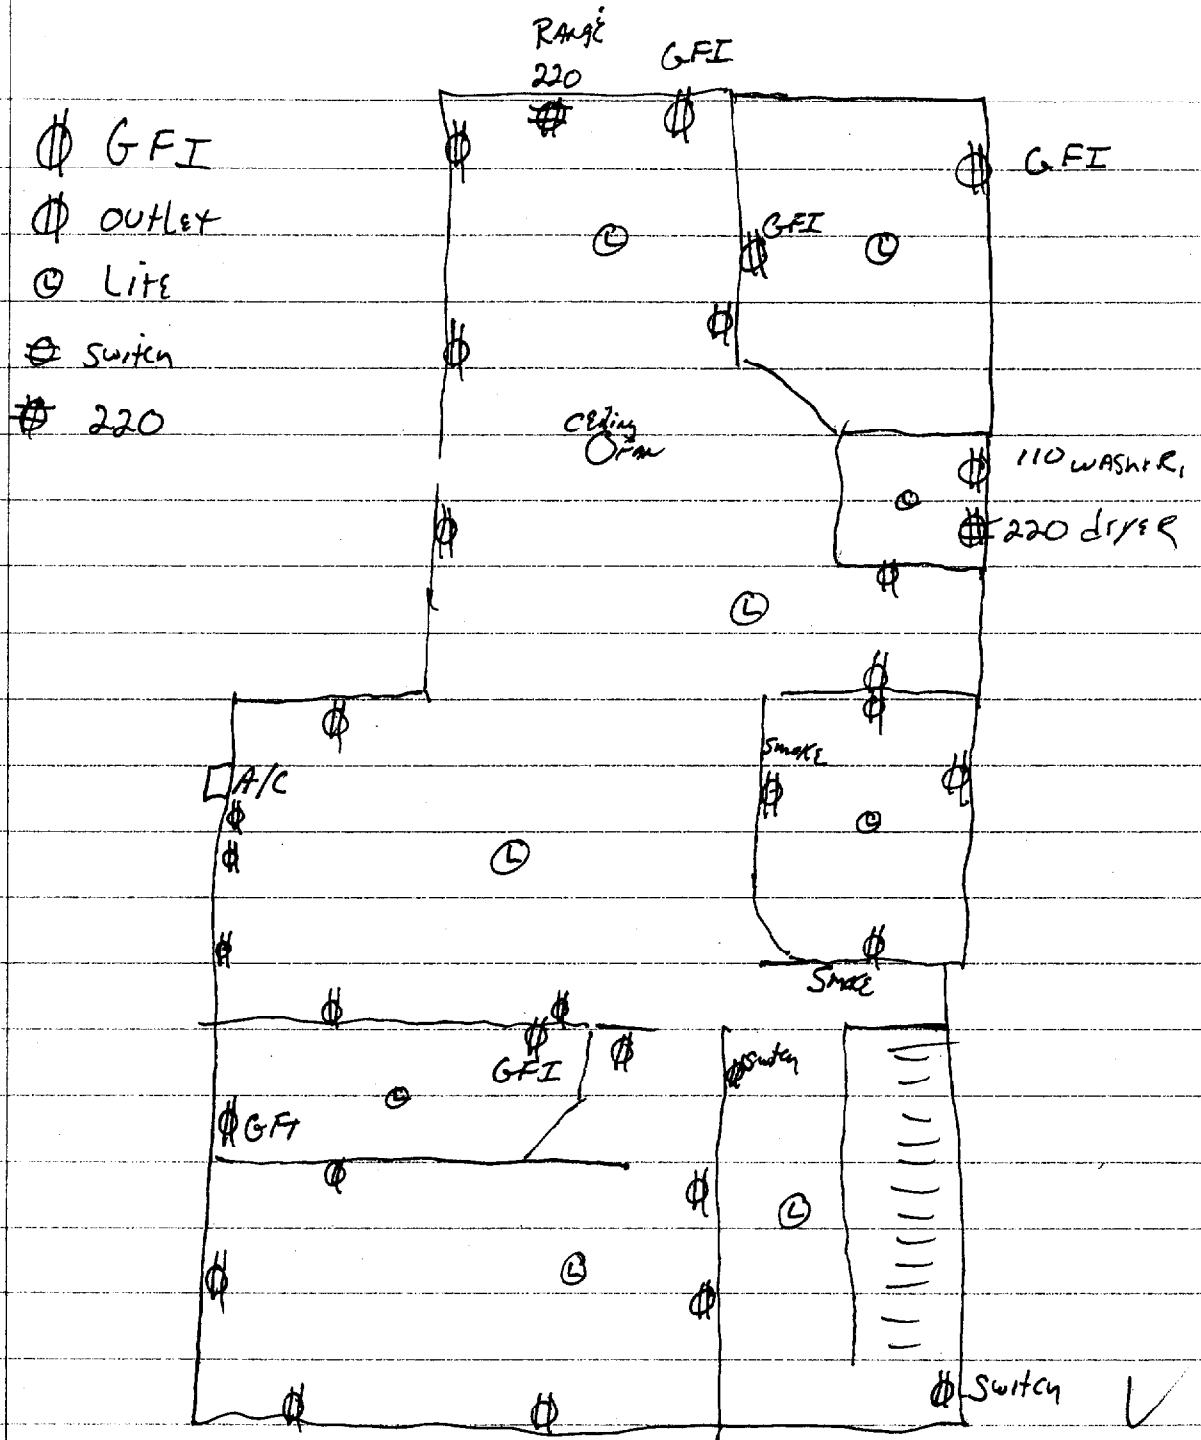 RANGE
220
GFI
GFI
OUtLEt
LitE
Switch
220
GFI
GFI
L
L
CEiling
FAN
110 WASHER,
220 dryER
L
L
SmokE
A/C
L
L
SmokE
GFI
Switch
L
GFI
L
L
Switch